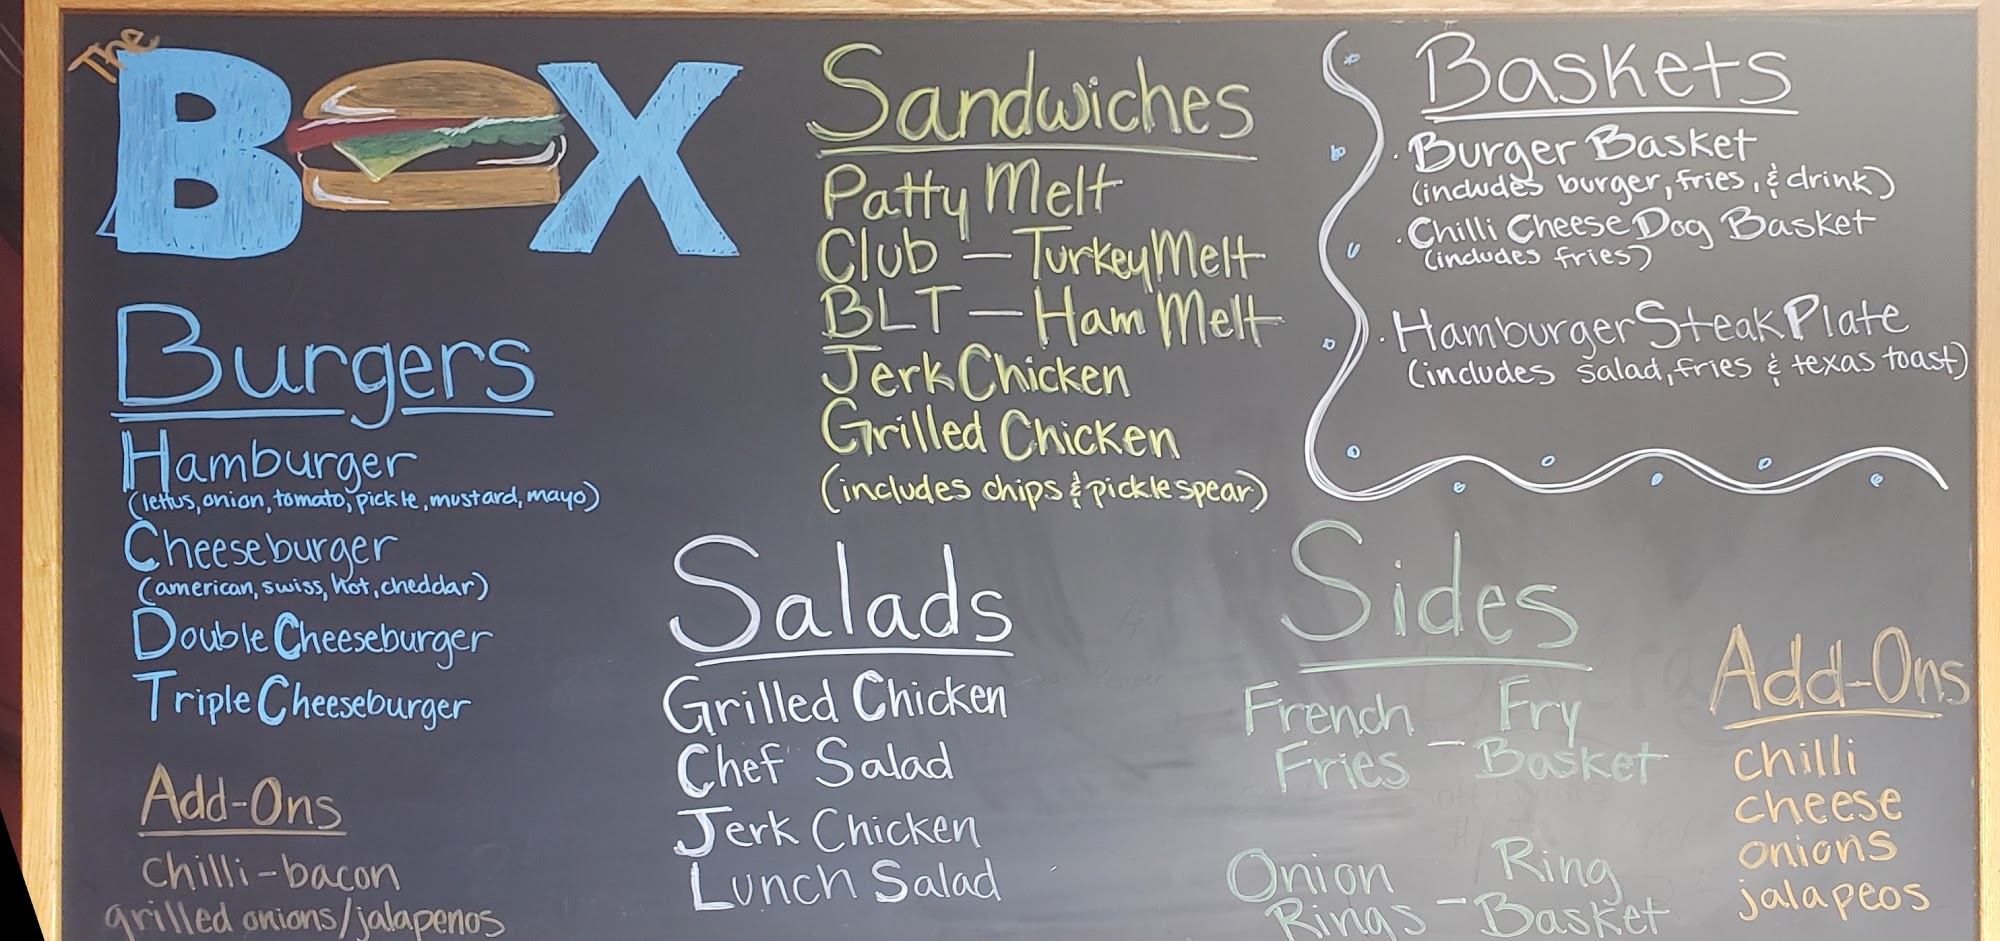 The
BOX
Burgers
Hamburger
(lettus, onion, tomato, pickle, mustard, mayo)
Cheeseburger
(american, swiss, hot, cheddar)
Double Cheeseburger
Triple Cheeseburger
Add-Ons
chilli - bacon
grilled onions/jalapenos
Sandwiches
Patty Melt
Club — Turkey Melt
BLT — Ham Melt
Jerk Chicken
Grilled Chicken
(includes chips & pickle spear)
Salads
Grilled Chicken
Chef Salad
Jerk Chicken
Lunch Salad
Baskets
· Burger Basket
(includes burger, fries, & drink)
· Chilli Cheese Dog Basket
(includes fries)
· Hamburger Steak Plate
(includes salad, fries & texas toast)
Sides
French Fries - Fry Basket
Onion Rings - Ring Basket
Add-Ons
chilli
cheese
onions
jalapeos